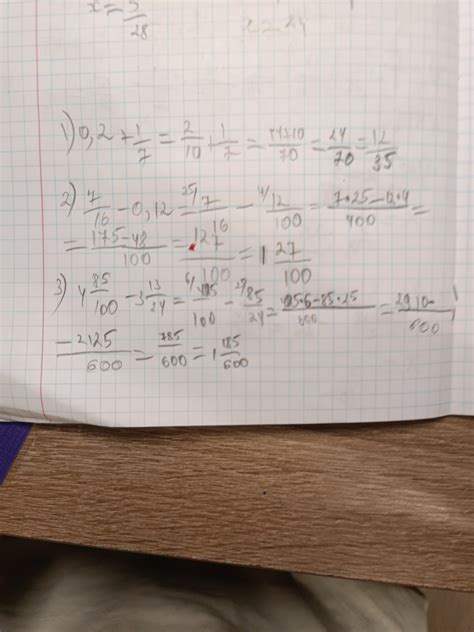 x = 5/28
1) 0,2 + 1/7 = 2/10 + 1/7 = 14+10/70 = 24/70 = 12/35
2) 7/16 - 0,12 = 25/ 7/16 - 4/ 12/100 = 7·25-12·4/400 =
= 175-48/100 = 127/100 = 1 27/100
3) 4 85/100 - 3 13/24 = 6/ 485/100 - 25/ 85/24 = 485·6-85·25/600 = 2910-/600
-2125/600 = 785/600 = 1 185/600